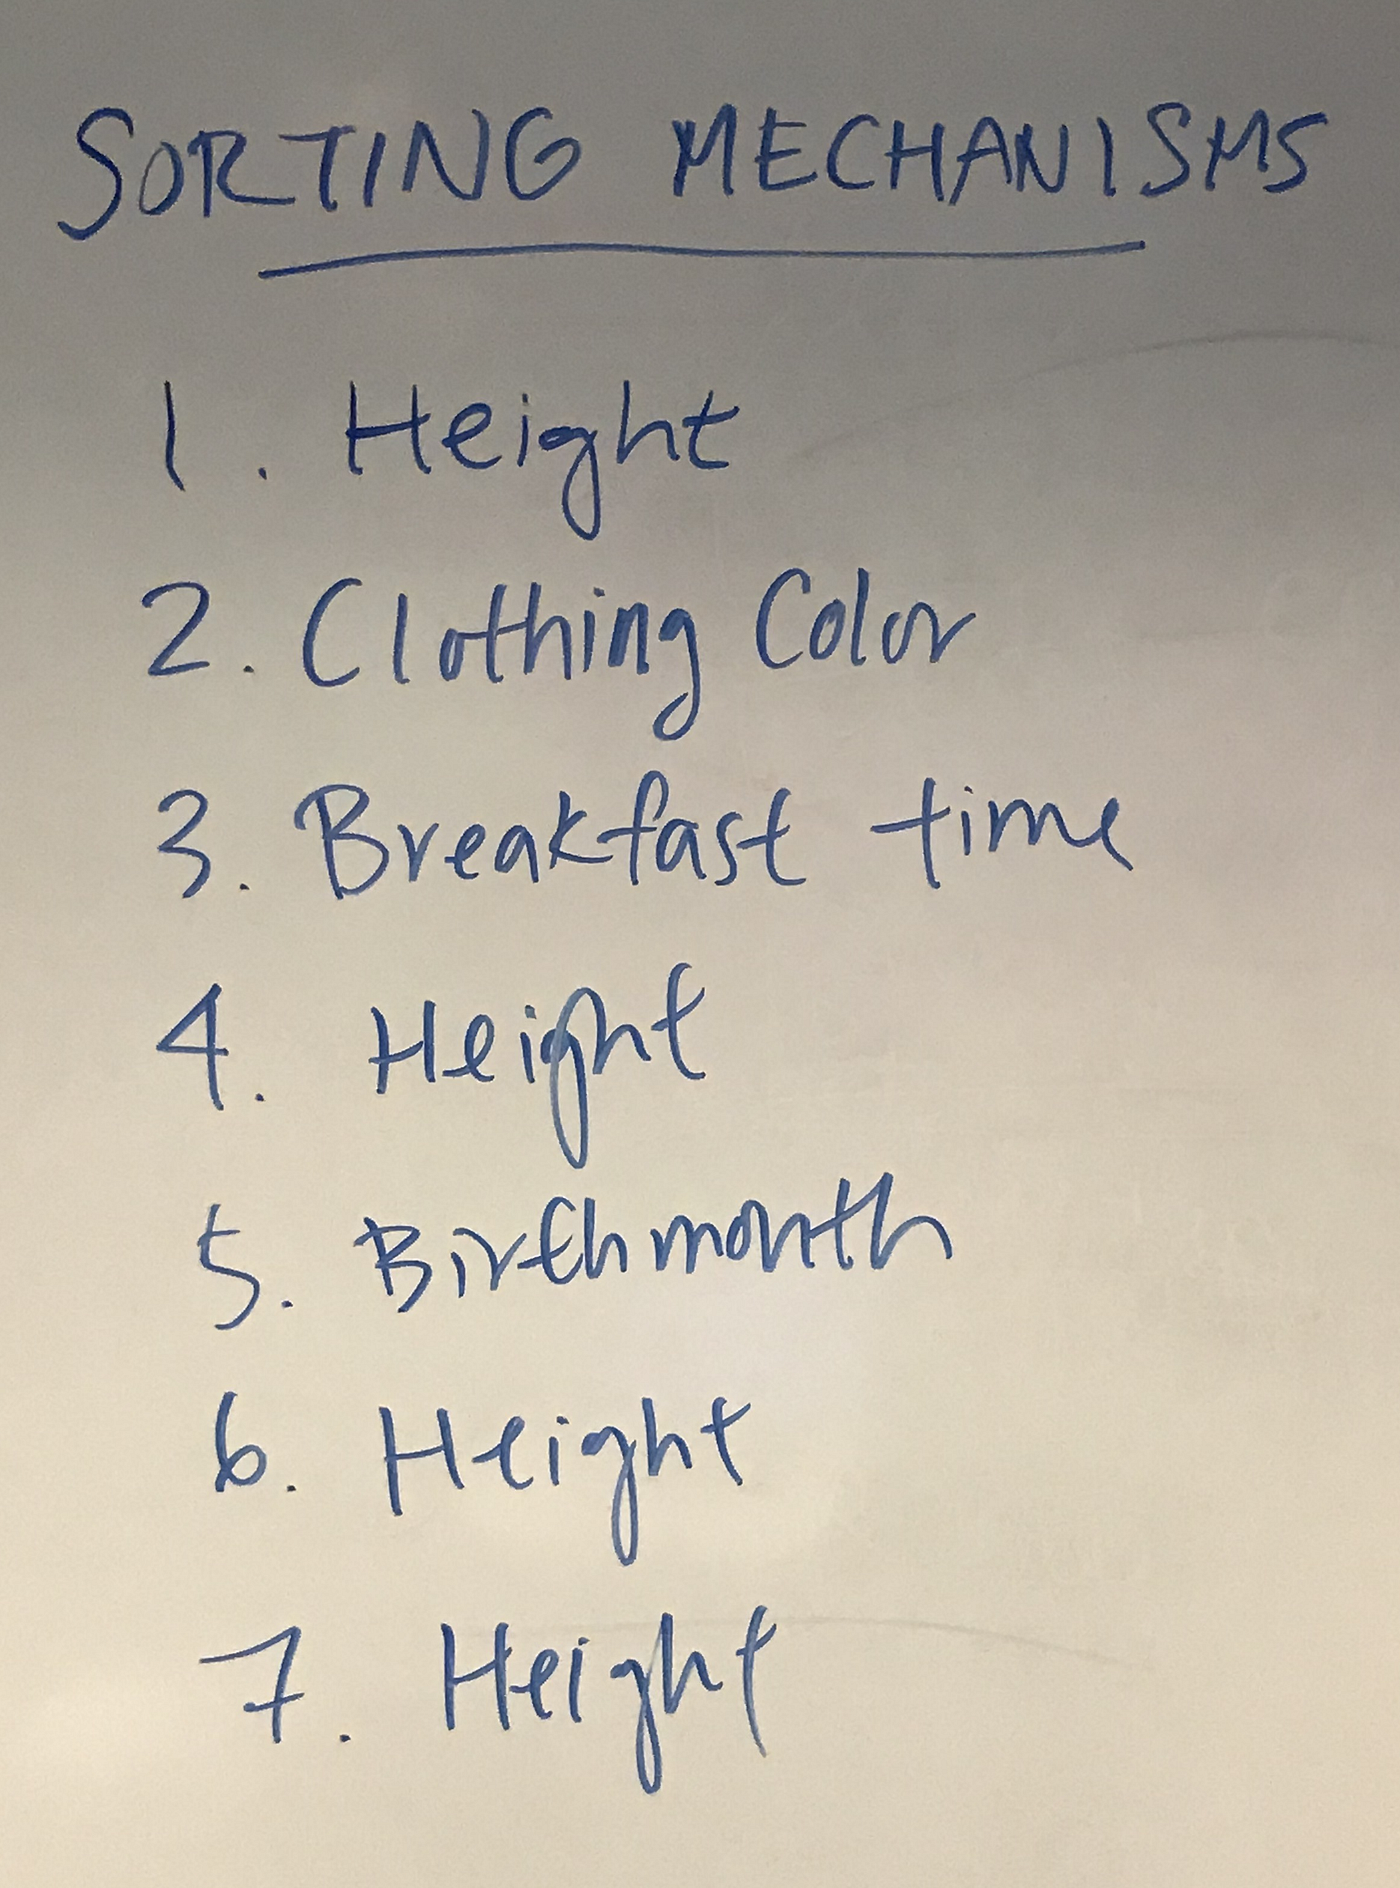 SORTING MECHANISMS
1. Height
2. Clothing Color
3. Breakfast time
4. Height
5. Birthmonth
6. Height
7. Height